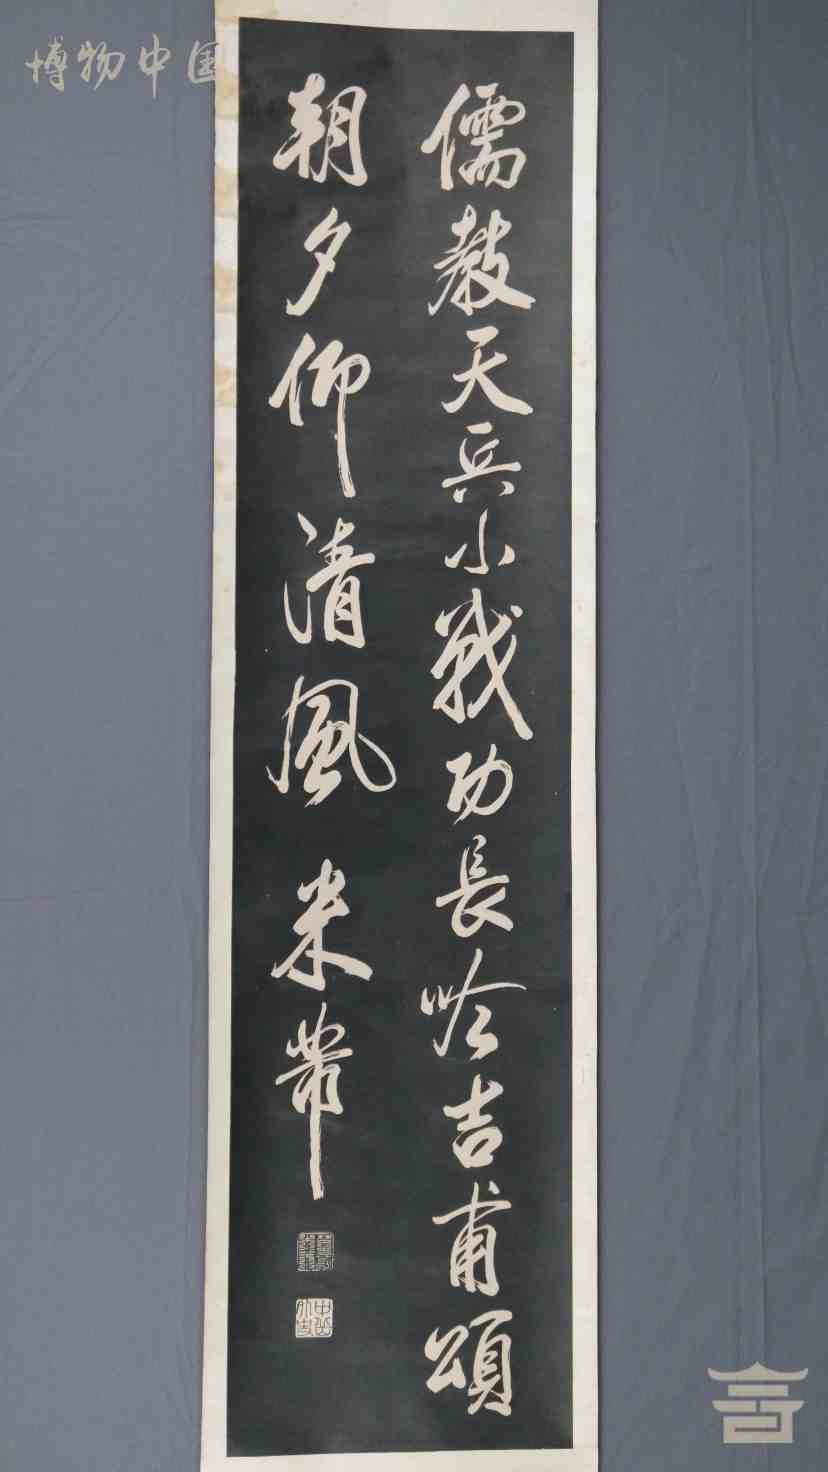 儒教天兵小戰功長吟吉甫頌
朝夕仰清風 米芾
博物中国